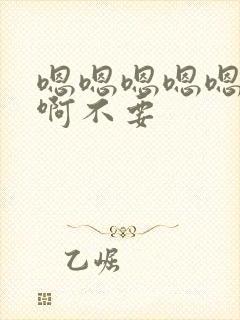 嗯嗯嗯嗯嗯
啊不要
乙崛